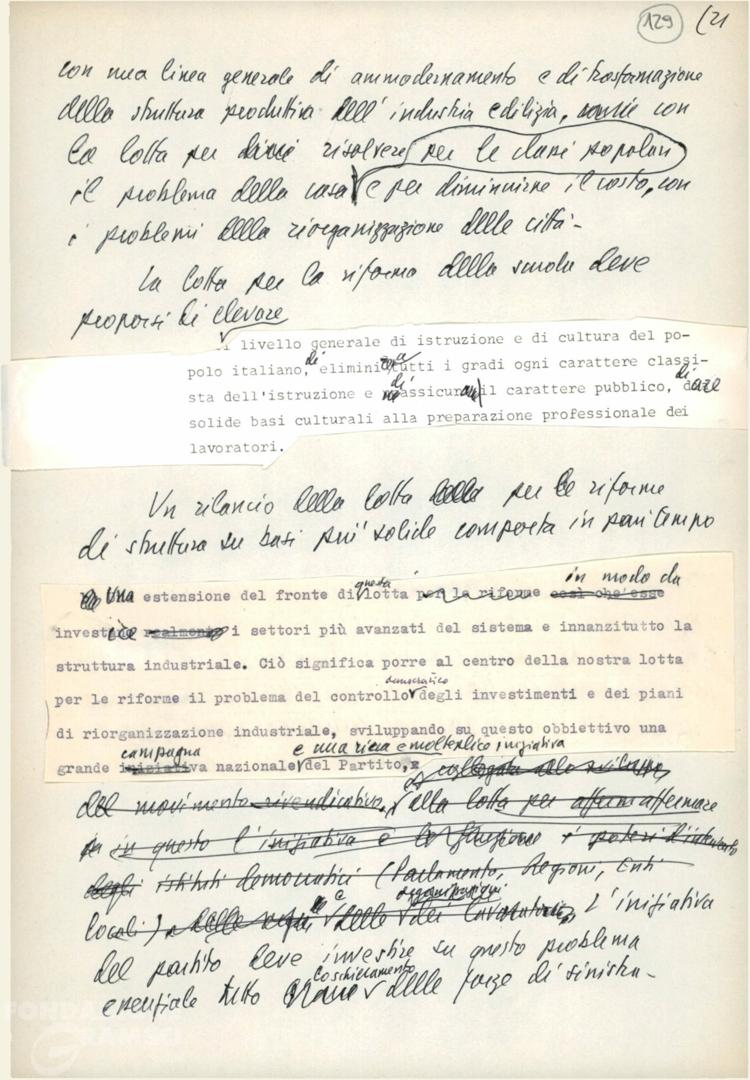 129 (21
con una linea generale di ammodernamento e di trasformazione
della struttura produttiva dell'industria edilizia, con
la lotta per risolvere per le classi popolari
il problema della casa e per diminuirne il costo, con
i problemi della riorganizzazione delle città.
La lotta per la riforma della scuola deve
proporsi di elevare
il livello generale di istruzione e di cultura del po-
polo italiano, di elimini tutti i gradi ogni carattere classi-
sta dell'istruzione e di assicurare il carattere pubblico, di dare
solide basi culturali alla preparazione professionale dei
lavoratori.
Un rilancio della lotta per le riforme
di struttura su basi più solide comporta in pari tempo
Una estensione del fronte di questa lotta per le riforme così che esse in modo da
investire realmente i settori più avanzati del sistema e innanzitutto la
struttura industriale. Ciò significa porre al centro della nostra lotta
per le riforme il problema del controllo democratico degli investimenti e dei piani
di riorganizzazione industriale, sviluppando su questo obbiettivo una
grande iniziativa campagna nazionale e una ricca e molteplice iniziativa del Partito,
collegata allo sviluppo
del movimento rivendicativo, alla lotta per affermare
in questo l'iniziativa e la funzione i poteri d'intervento
degli istituti democratici (Parlamento, Regioni, Enti
locali) e delle organizzazioni dei lavoratori. L'iniziativa
del partito deve investire su questo problema
essenziale tutto lo schieramento delle forze di sinistra.
FONDAZIONE
GRAMSCI